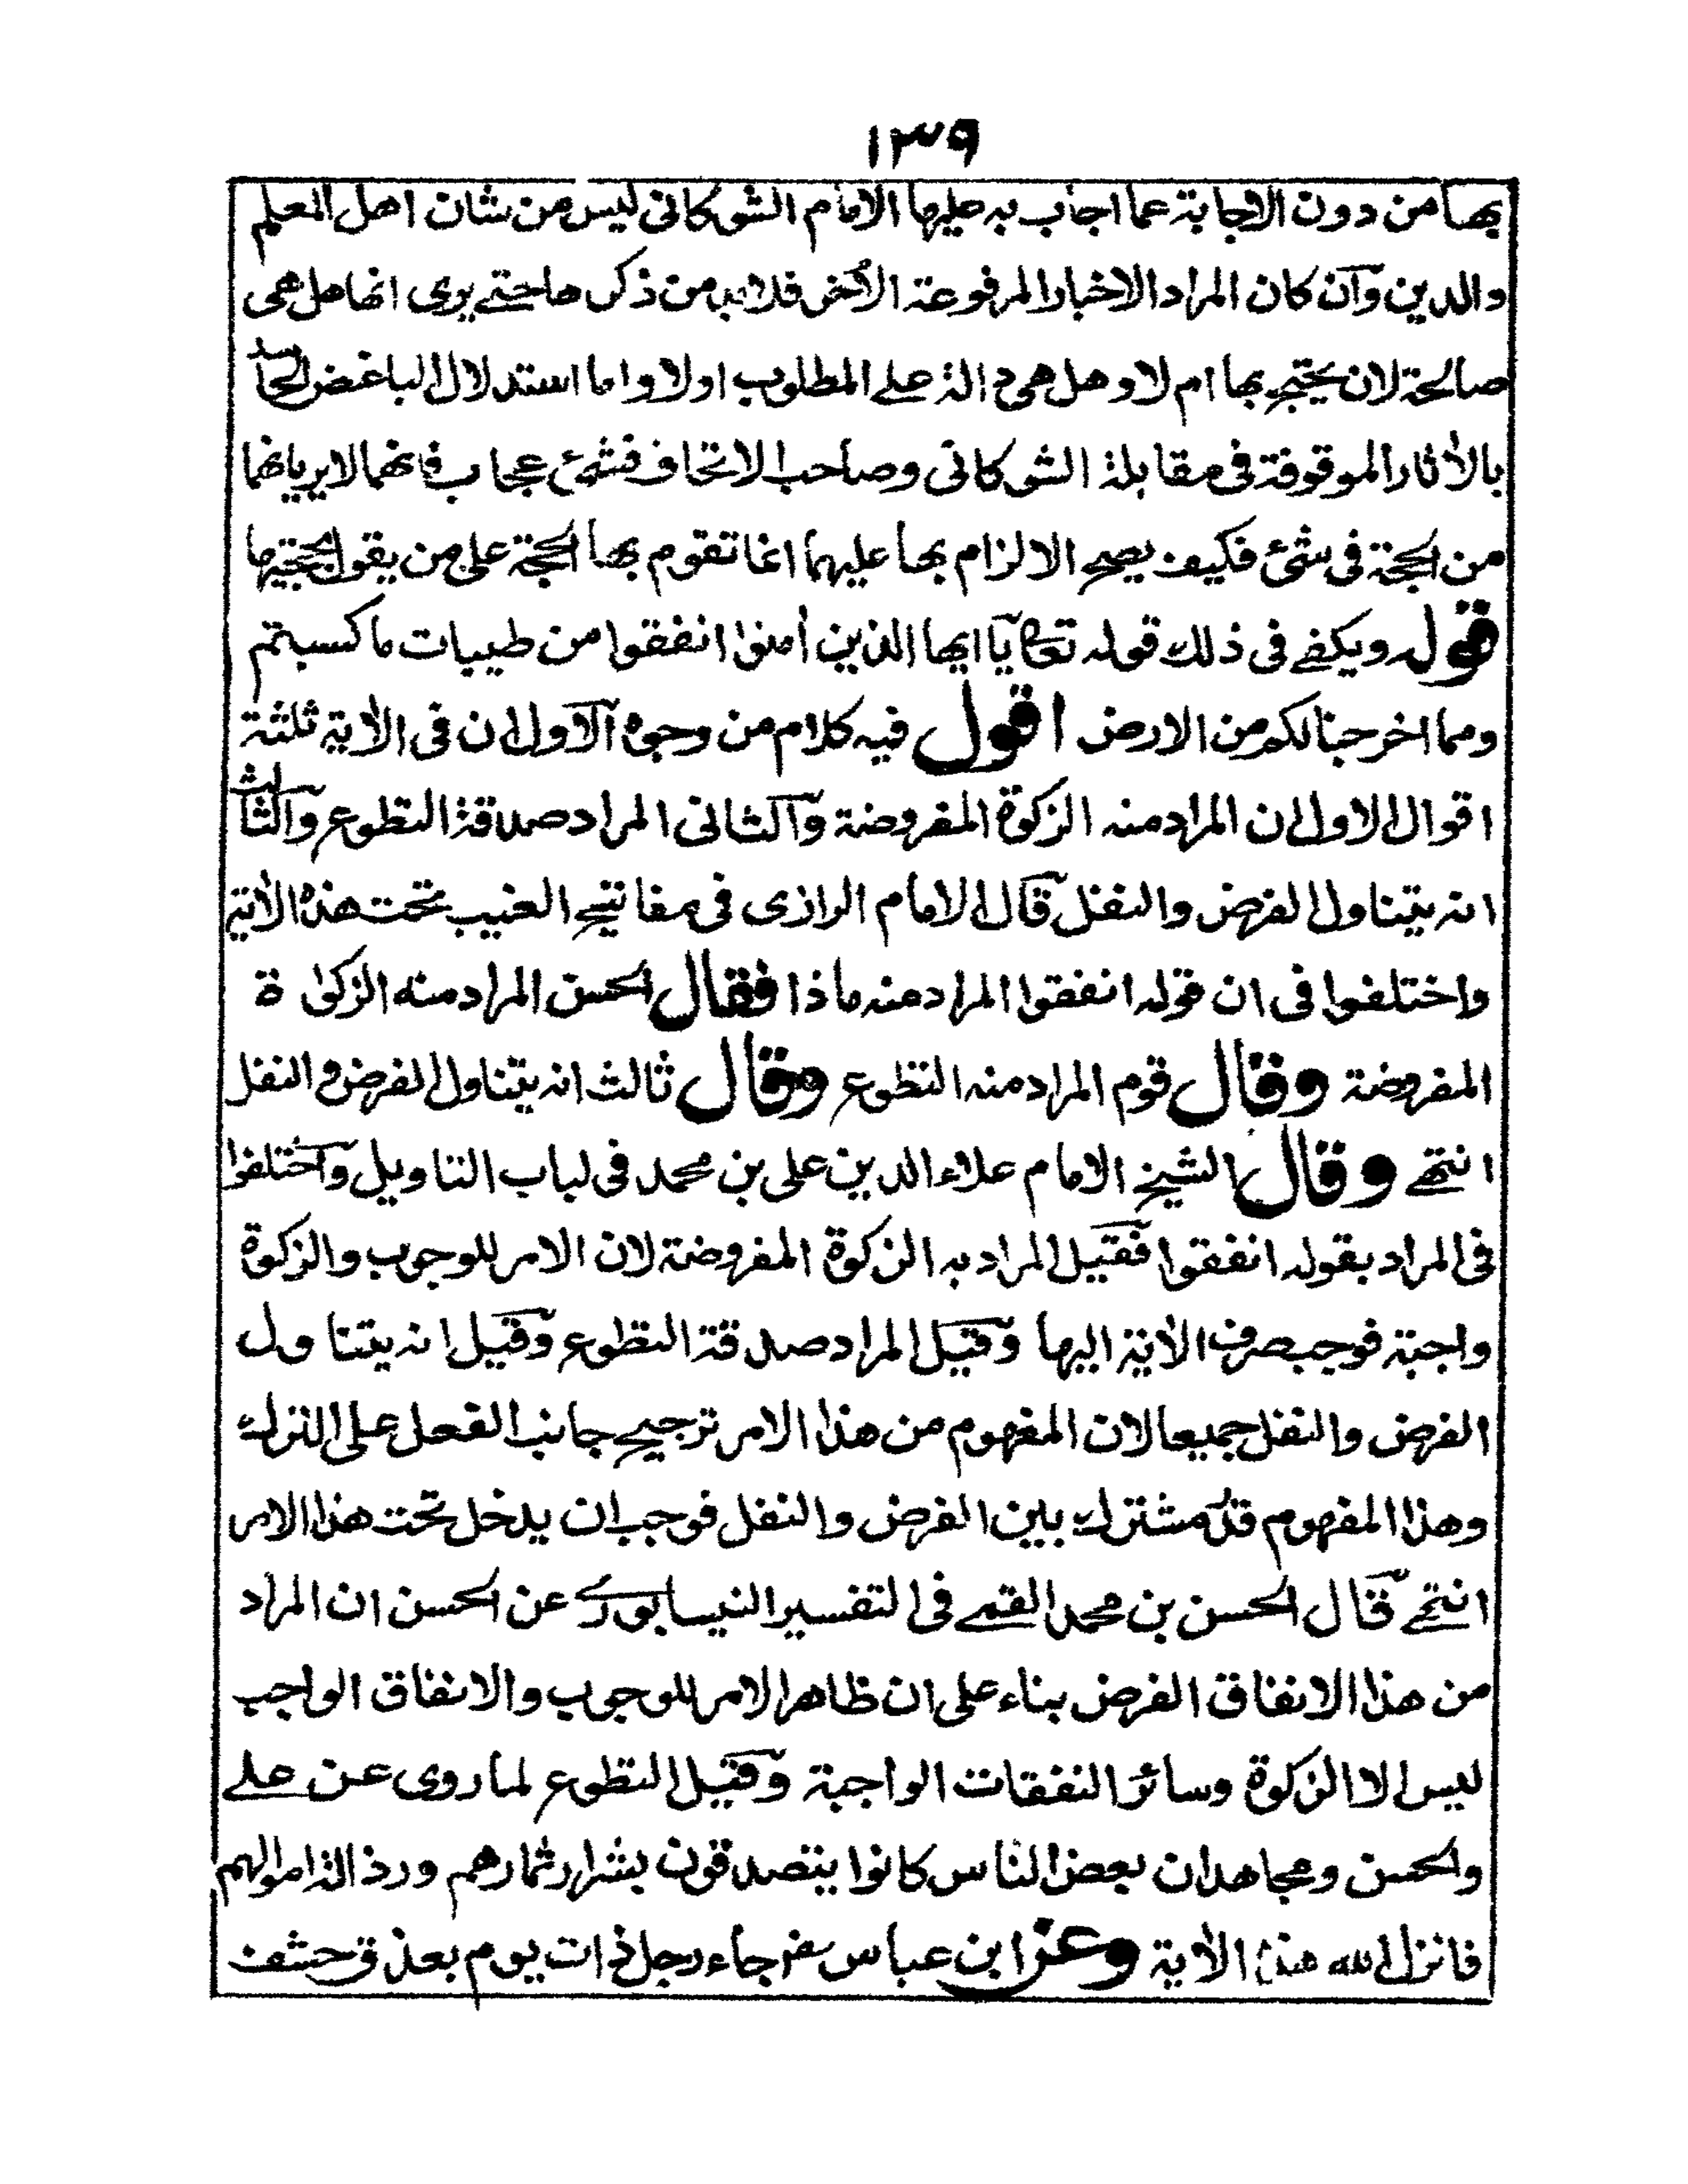 ١٣٩
بها من دون الاجابة عما اجاب به عليها الامام الشوكانى ليس من شان اهل العلم
والدين وان كان المراد الاخبار المرفوعة الأخر فلابد من ذكرها حتے يرى انها هل هى
صالحة لان يحتج بها ام لا وهل هى دالة علے المطلوب اولا واما استدلال الباغض الحاسد
بالأثار الموقوفة فى مقابلة الشوكانى وصاحب الاتحاف فشئ عجاب فانهما لا يريانها
من الحجة فى شئ فكيف يصح الالزام بها عليهما انما تقوم بها الحجة على من يقول بحجيتها
قوله ويكفے فى ذلك قوله تعالى يآ ايها الذين أمنوا انفقوا من طيبات ما كسبتم
ومما اخرجنا لكم من الارض اقول فيه كلام من وجوه الاول ان فى الأية ثلثة
اقوال الاول ان المراد منه الزكوة المفروضة والثانى المراد صدقة التطوع والثالث
انه يتناول الفرض والنفل قال الامام الرازى فى مفاتيح الغيب تحت هذه الأية
واختلفوا فى ان قوله انفقوا المراد منه ماذا فقال الحسن المراد منه الزكوٰة
المفروضة وقال قوم المراد منه التطوع وقال ثالث انه يتناول الفرض والنفل
انتهے وقال الشيخ الامام علاء الدين على بن محمد فى لباب التاويل واختلفوا
فى المراد بقوله انفقوا فقيل المراد به الزكوة المفروضة لان الامر للوجوب والزكوة
واجبة فوجب صرف الأية اليها وقيل المراد صدقة التطوع وقيل انه يتناول
الفرض والنفل جميعا لان المفهوم من هذا الامر ترجيح جانب الفعل على الترك
وهذا المفهوم قدر مشترك بين الفرض والنفل فوجب ان يدخل تحت هذا الامر
انتهے قال الحسن بن محمد القمے فى التفسير النيسابورے عن الحسن ان المراد
من هذا الانفاق الفرض بناء على ان ظاهر الامر للوجوب والانفاق الواجب
ليس الا الزكوة وسائر النفقات الواجبة وقيل التطوع لما روى عن علے
والحسن ومجاهد ان بعض الناس كانوا يتصدقون بشرار ثمارهم ورذالة اموالهم
فانزل الله هذه الأية وعن ابن عباس رض جاء رجل ذات يوم بعذق حشف